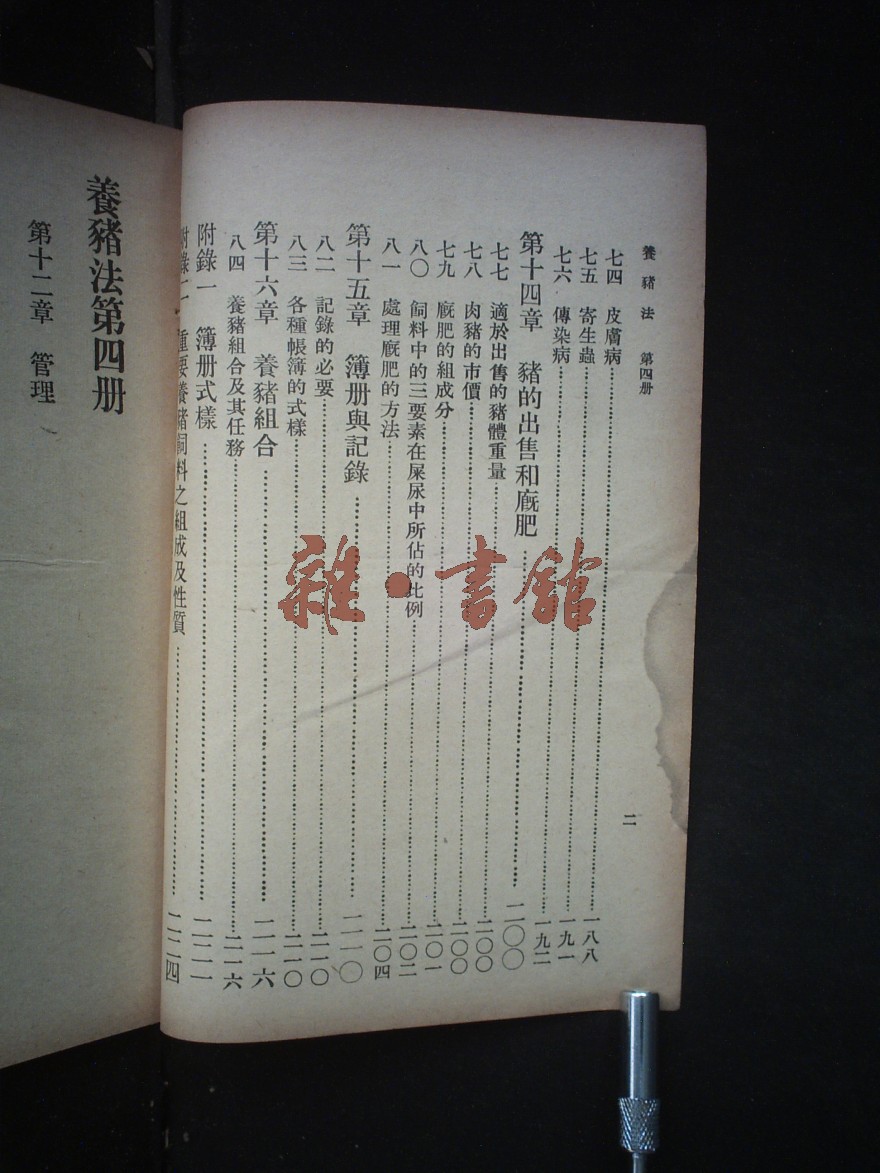 養豬法 第四册
二
七四 皮膚病 一八八
七五 寄生蟲 一九一
七六 傳染病 一九二
第十四章 豬的出售和廐肥 二〇〇
七七 適於出售的豬體重量 二〇〇
七八 肉豬的市價 二〇〇
七九 廐肥的組成分 二〇一
八〇 飼料中的三要素在屎尿中所佔的比例 二〇二
八一 處理廐肥的方法 二〇四
第十五章 簿册與記錄 二一〇
八二 記錄的必要 二一〇
八三 各種帳簿的式樣 二一〇
第十六章 養豬組合 二一六
八四 養豬組合及其任務 二一六
附錄一 簿册式樣 二二一
附錄二 重要養豬飼料之組成及性質 二二四
養豬法第四册
第十二章 管理
雜·書館